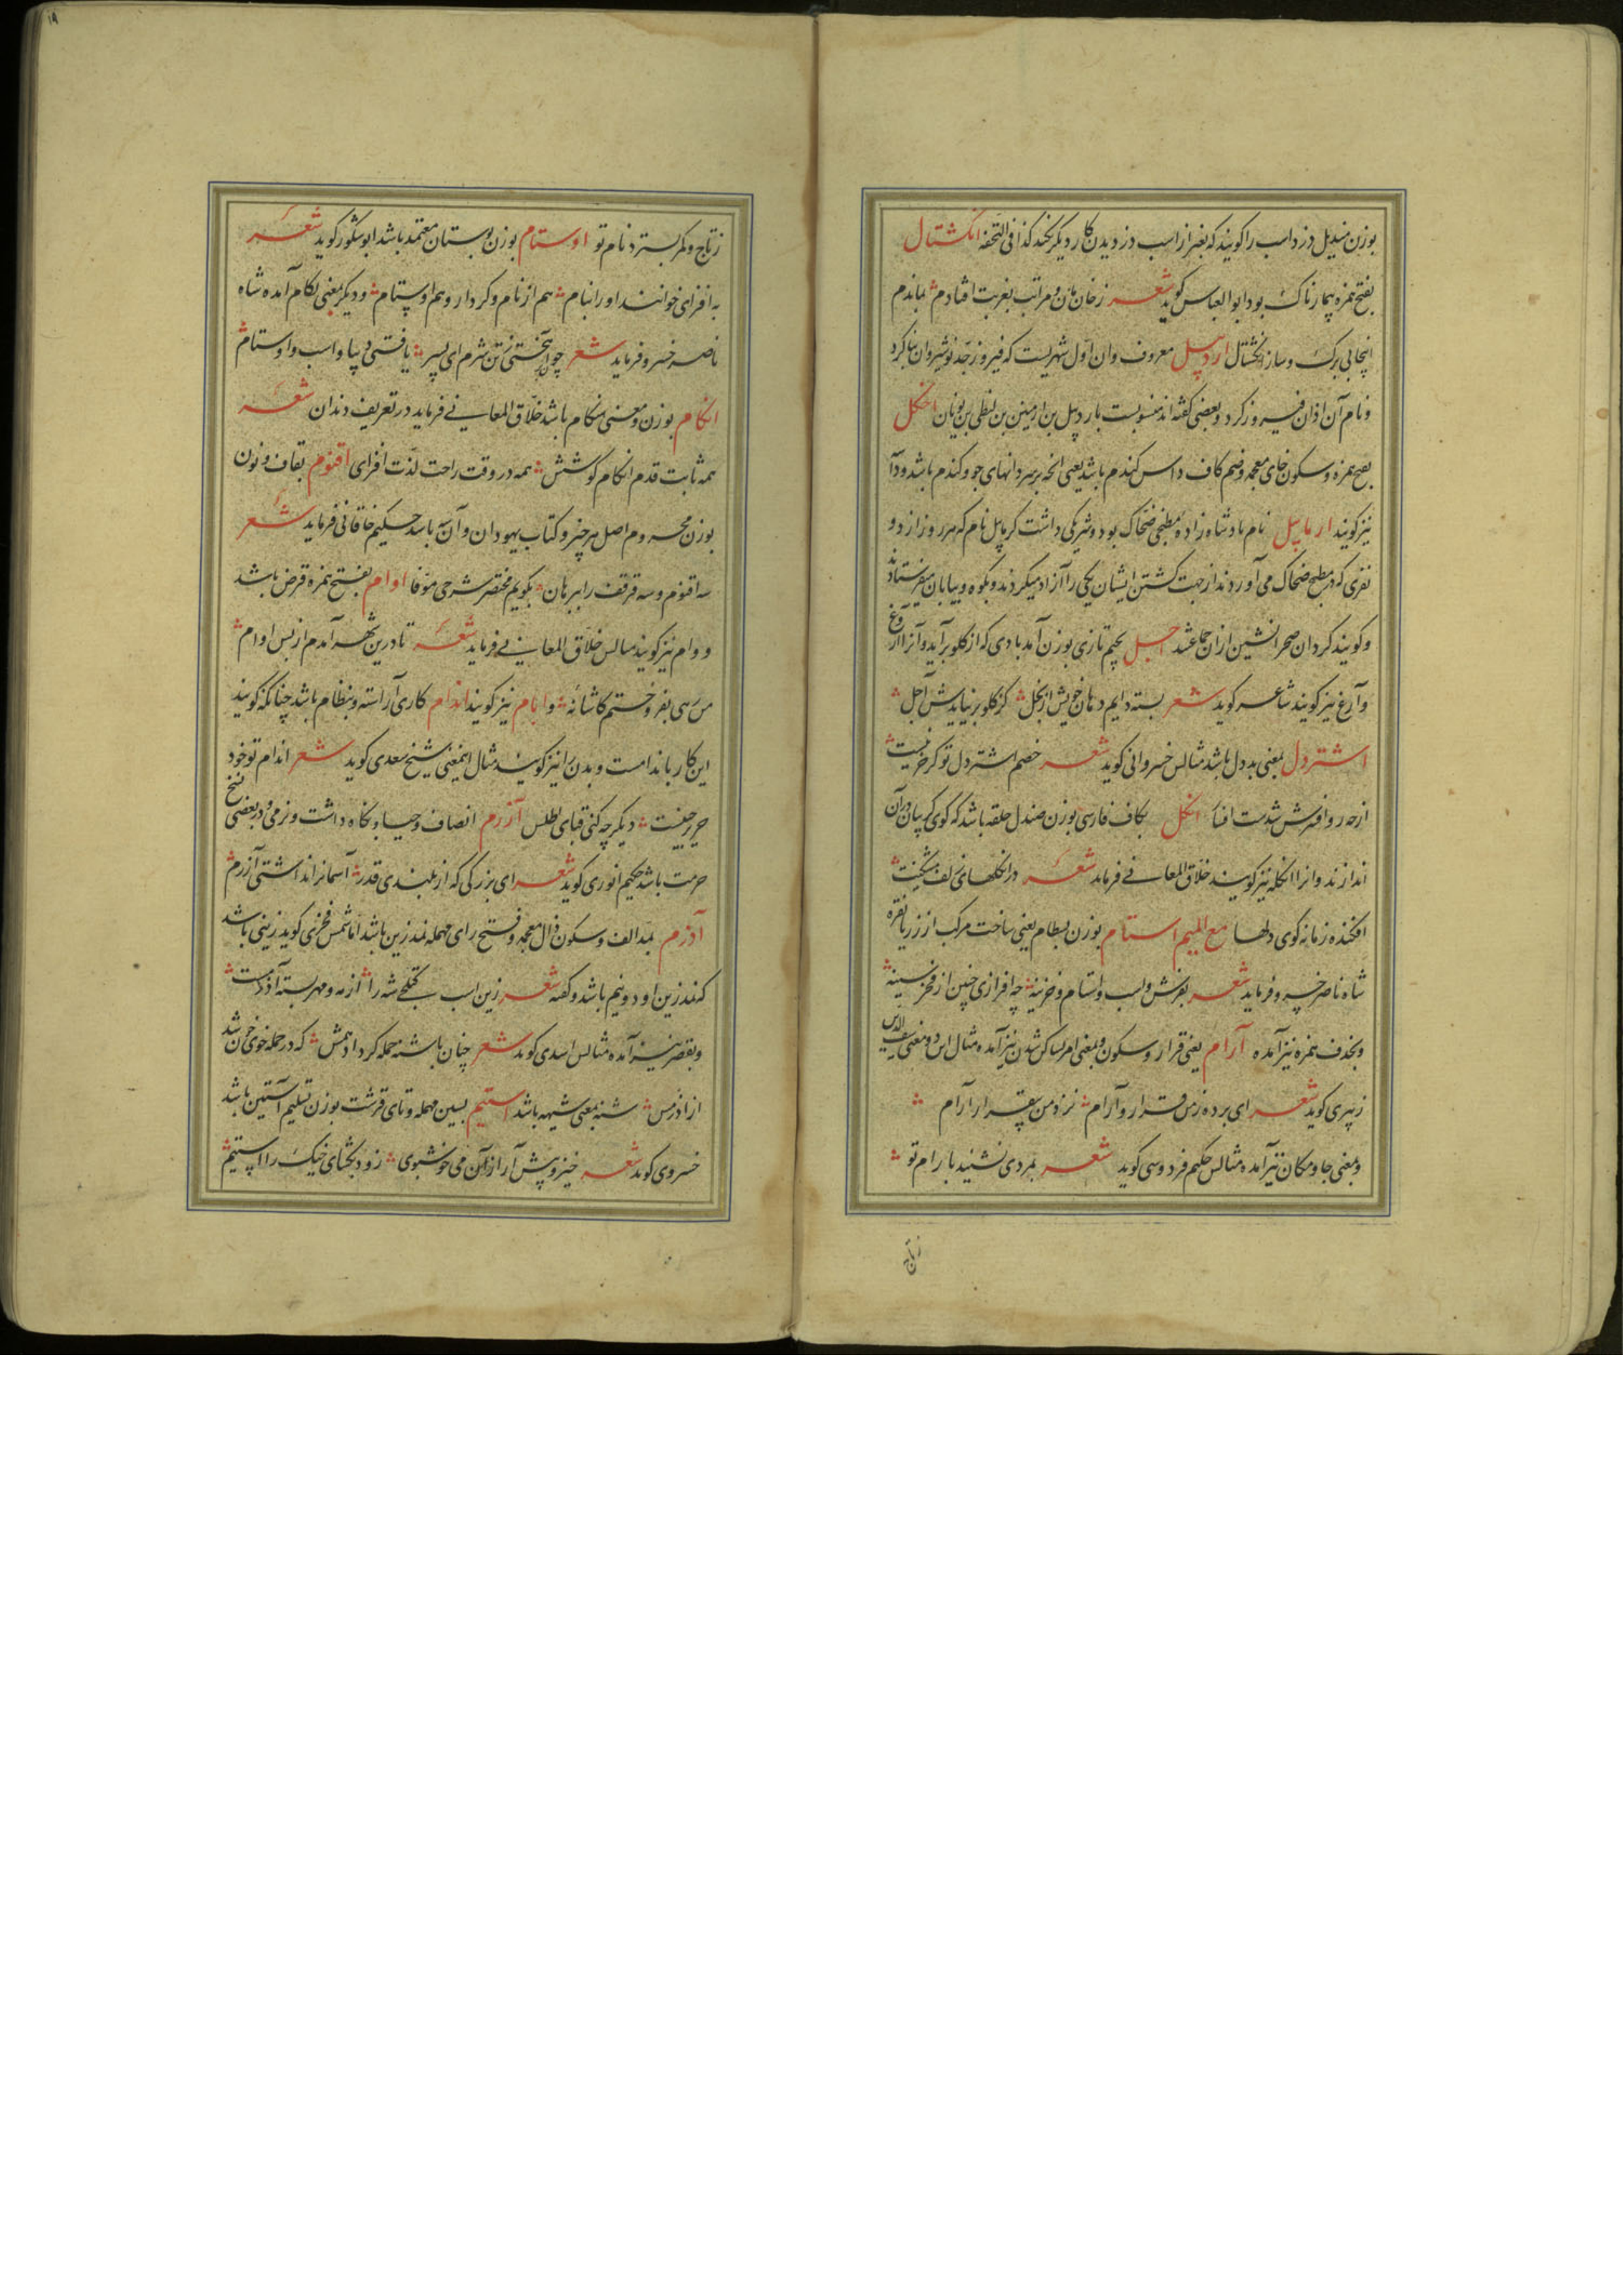 بوزن مندیل دزد اسب را کویند که بغیر از اسب دزدیدن کار دیکر نکند کذا فی التحفه انکشتال
بفتح همزه بیمارناک بود ابوالعباس کوید شعر زخان مان و مراتب بغربت افتادم بماندم
اینجا بی برک و ساز انکشتال اردبیل معروف و ان اول شهریست که فیروز جد نوشیروان بنا کرد
و نام آن اذان فیروز کرد و بعضی کفته اند منسوبست باردبیل بن ارمینن بن لنطی بن یونان اخکل
بفتح همزه و سکون خای معجمه و ضم کاف داس کندم باشد یعنی انچه بر سر دانهای جو و کندم باشد و دآ
نیز کویند ارمایل نام پادشاه زاده مطبخی ضحاک بود و شریکی داشت کرمایل نام که هر روز از دو
نفری که در مطبخ ضحاک می آوردند از جهت کشتن ایشان یکی را آزاد میکردند و بکوه و بیابان میفرستادند
و کویند کردان صحرانشین از ان جماعتند اجل بجیم تازی بوزن آمد بادی که از کلو برآید و آنرا آروغ
و آرغ نیز کویند شاعر کوید شعر بسته دایم دهان خویش از بخل کز کلو بر نیایدش آجل
اشتردل بمعنی بد دل باشد مثالس خسروانی کوید شعر خصم اشتردل تو کر خر نیست
از چه رو افسرش شدست افسار انکل بکاف فارسی بوزن صندل حلقه باشد که کوی کریبان در آن
اندازند و انرا انکله نیز کویند خلاق المعانی فرماید شعر در انکلهای زلف مشکینت
افکنده زمانه کوی دلها مع المیم استام بوزن بسطام یعنی ساخت مرکب از زر یا نقره
شاه ناصر خسرو فرماید شعر بفرش و اسب و استام و خزینه چه افرازی چنین ازفخر سینه
و بحذف همزه نیز آمده آرام یعنی قرار و سکون و بمعنی امر بساکن شدن نیز آمده مثال این دو معنی سیف الدین
زبیری کوید شعر ای برده ز من قرار و آرام نزد من بیقرار آرام
و بمعنی جا و مکان نیز آمده مثالس حکیم فردوسی کوید شعر بمردی نشنید بارام تو
زتاج
۱۹
زتاج و کمر بسترد نام تو اوستام بوزن بوستان معتمد باشد ابوشکور کوید شعر
به افزای خوانند او را بنام هم از نام و کردار و هم اوستام و دیکر بمعنی لکام آمده شاه
ناصر خسرو فرماید شعر چون برآهختی زتن شرم ای پسر یافتی دیبا و اسب و اوستام
انکام بوزن و معنی هنکام باشد خلاق المعانی فرماید در تعریف دندان شعر
همه ثابت قدم انکام کوشش همه در وقت راحت لذت افزای اقنوم بقاف و نون
بوزن محروم اصل هر چیز و کتاب یهودان و آن سه باشد حکیم خاقانی فرماید شعر
سه اقنوم و سه قرقف را ببرهان بکویم مختصر شرحی موفا اوام بفتح همزه قرض باشد
و وام نیز کویند مثالس خلاق المعانی فرماید شعر تا درین شهر آمدم از بس اوام
من سهی بفروختم کاشانه و اپام نیز کویند اندام کاری آراسته و بنظام باشد چنانکه کویند
این کار باندامست و بدن را نیز کویند مثال اینمعنی شیخ سعدی کوید شعر اندام تو خود
حریر چینست دیکر چه کنی قبای اطلس آزرم انصاف و حیا و نکاه داشت و نرمی و در بعضی نسخ
حرمت باشد حکیم انوری کوید شعر ای بزرکی که از بلندی قدر آسمانرا نداشتی آزرم
آذرم بمد الف و سکون ذال معجمه و فتح رای مهمله نمد زین باشد اما شمس فخری کوید زینی باشد
که نمد زین او دو نیم باشد و کفته شعر زین اسب کمکچی شه را از مه و مهر بسته آذرمست
و بقصر نیز آمده مثالس اسدی کوید شعر چنان باشنه حمله کرد ادهمش که در حمله خوی خون شد
از اذرمس شنه بمعنی شیهه باشد استیم بسین مهمله و تای قرشت بوزن تسلیم آستین باشد
خسروی کوید شعر خیز و پیش آر ازان می خوشبوی زود بکشای خیک را استیم